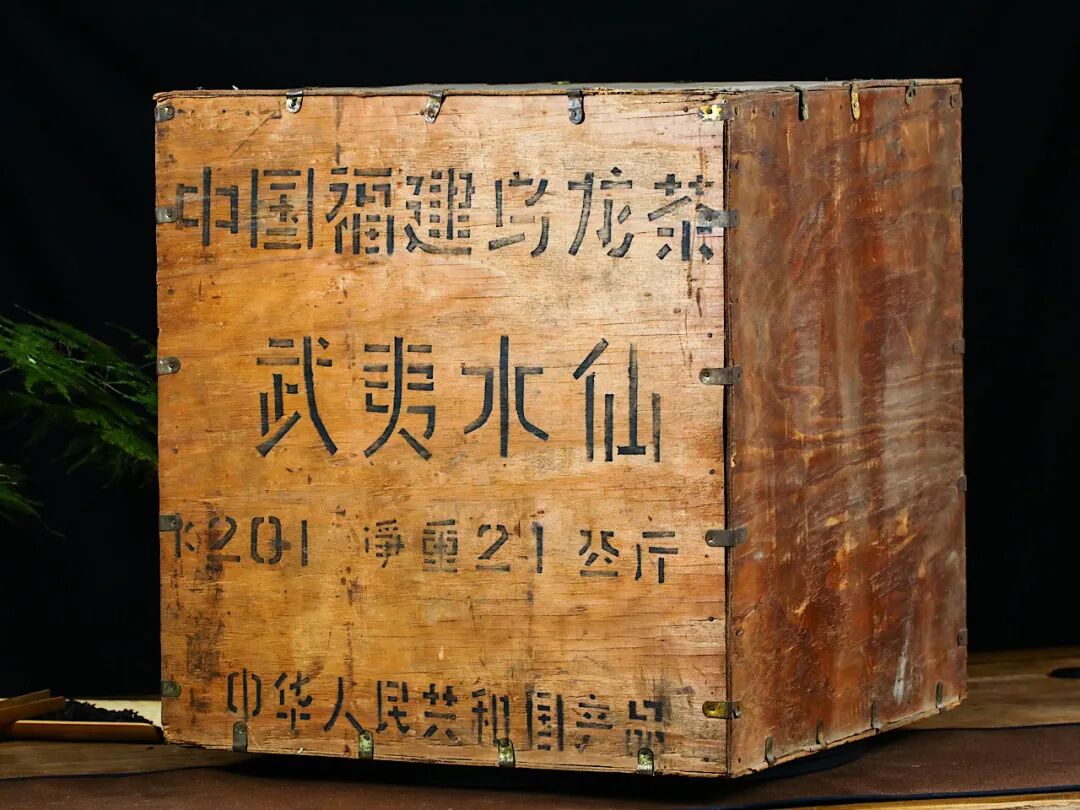 中国福建乌龙茶
武夷水仙
K201 淨重21公斤
中华人民共和国产品